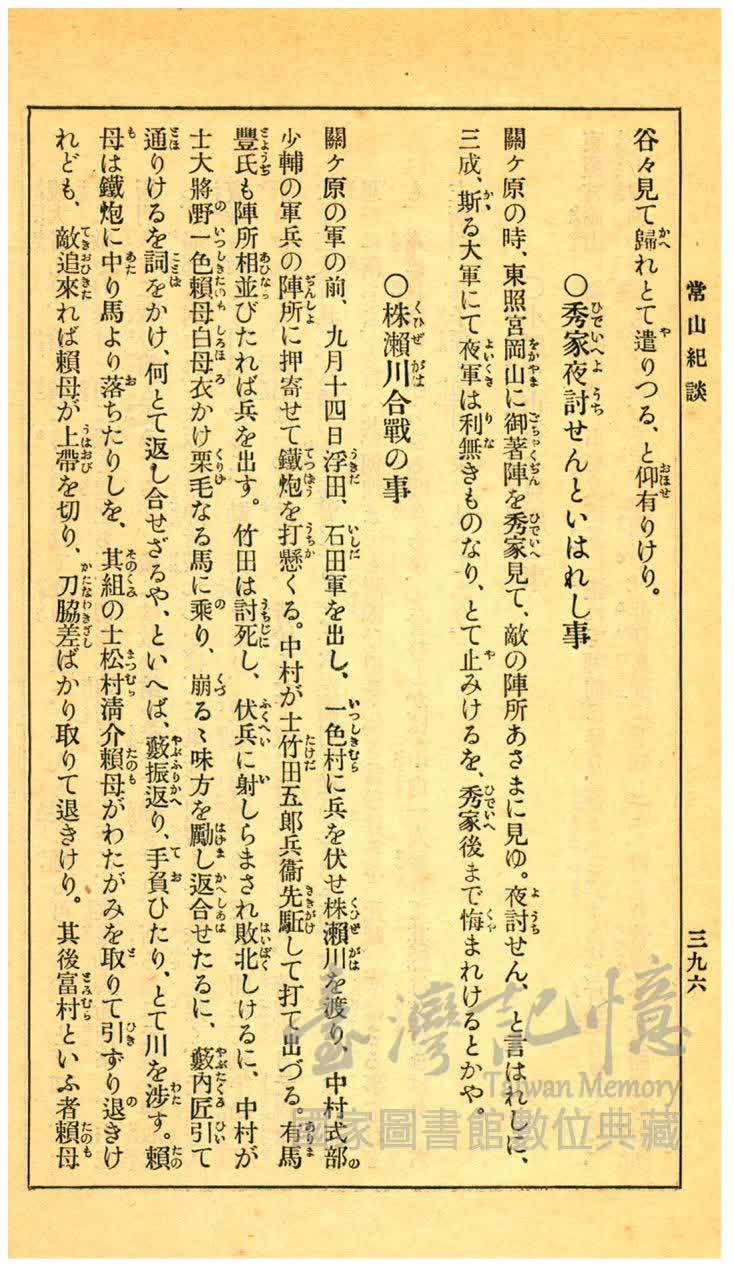 常山紀談
三九六
谷々見て歸れとて遣りつる、と仰有りけり。
〇秀家夜討せんといはれし事
關ヶ原の時、東照宮岡山に御著陣を秀家見て、敵の陣所あさまに見ゆ。夜討せん、と言はれしに、
三成、斯る大軍にて夜軍は利無きものなり、とて止みけるを、秀家後まで悔まれけるとかや。
〇株瀨川合戰の事
關ヶ原の軍の前、九月十四日浮田、石田軍を出し、一色村に兵を伏せ株瀨川を渡り、中村式部
少輔の軍兵の陣所に押寄せて鐵炮を打懸くる。中村が士竹田五郎兵衞先駈して打て出づる。有馬
豐氏も陣所相並びたれば兵を出す。竹田は討死し、伏兵に射しらまされ敗北しけるに、中村が
士大將野一色賴母白母衣かけ栗毛なる馬に乘り、崩るゝ味方を勵し返合せたるに、藪內匠引て
通りけるを詞をかけ、何とて返し合せざるや、といへば、藪振返り、手負ひたり、とて川を涉す。賴
母は鐵炮に中り馬より落ちたりしを、其組の士松村淸介賴母がわたがみを取りて引ずり退きけ
れども、敵追來れば賴母が上帶を切り、刀脇差ばかり取りて退きけり。其後富村といふ者賴母
臺灣記憶
Taiwan Memory
國家圖書館數位典藏